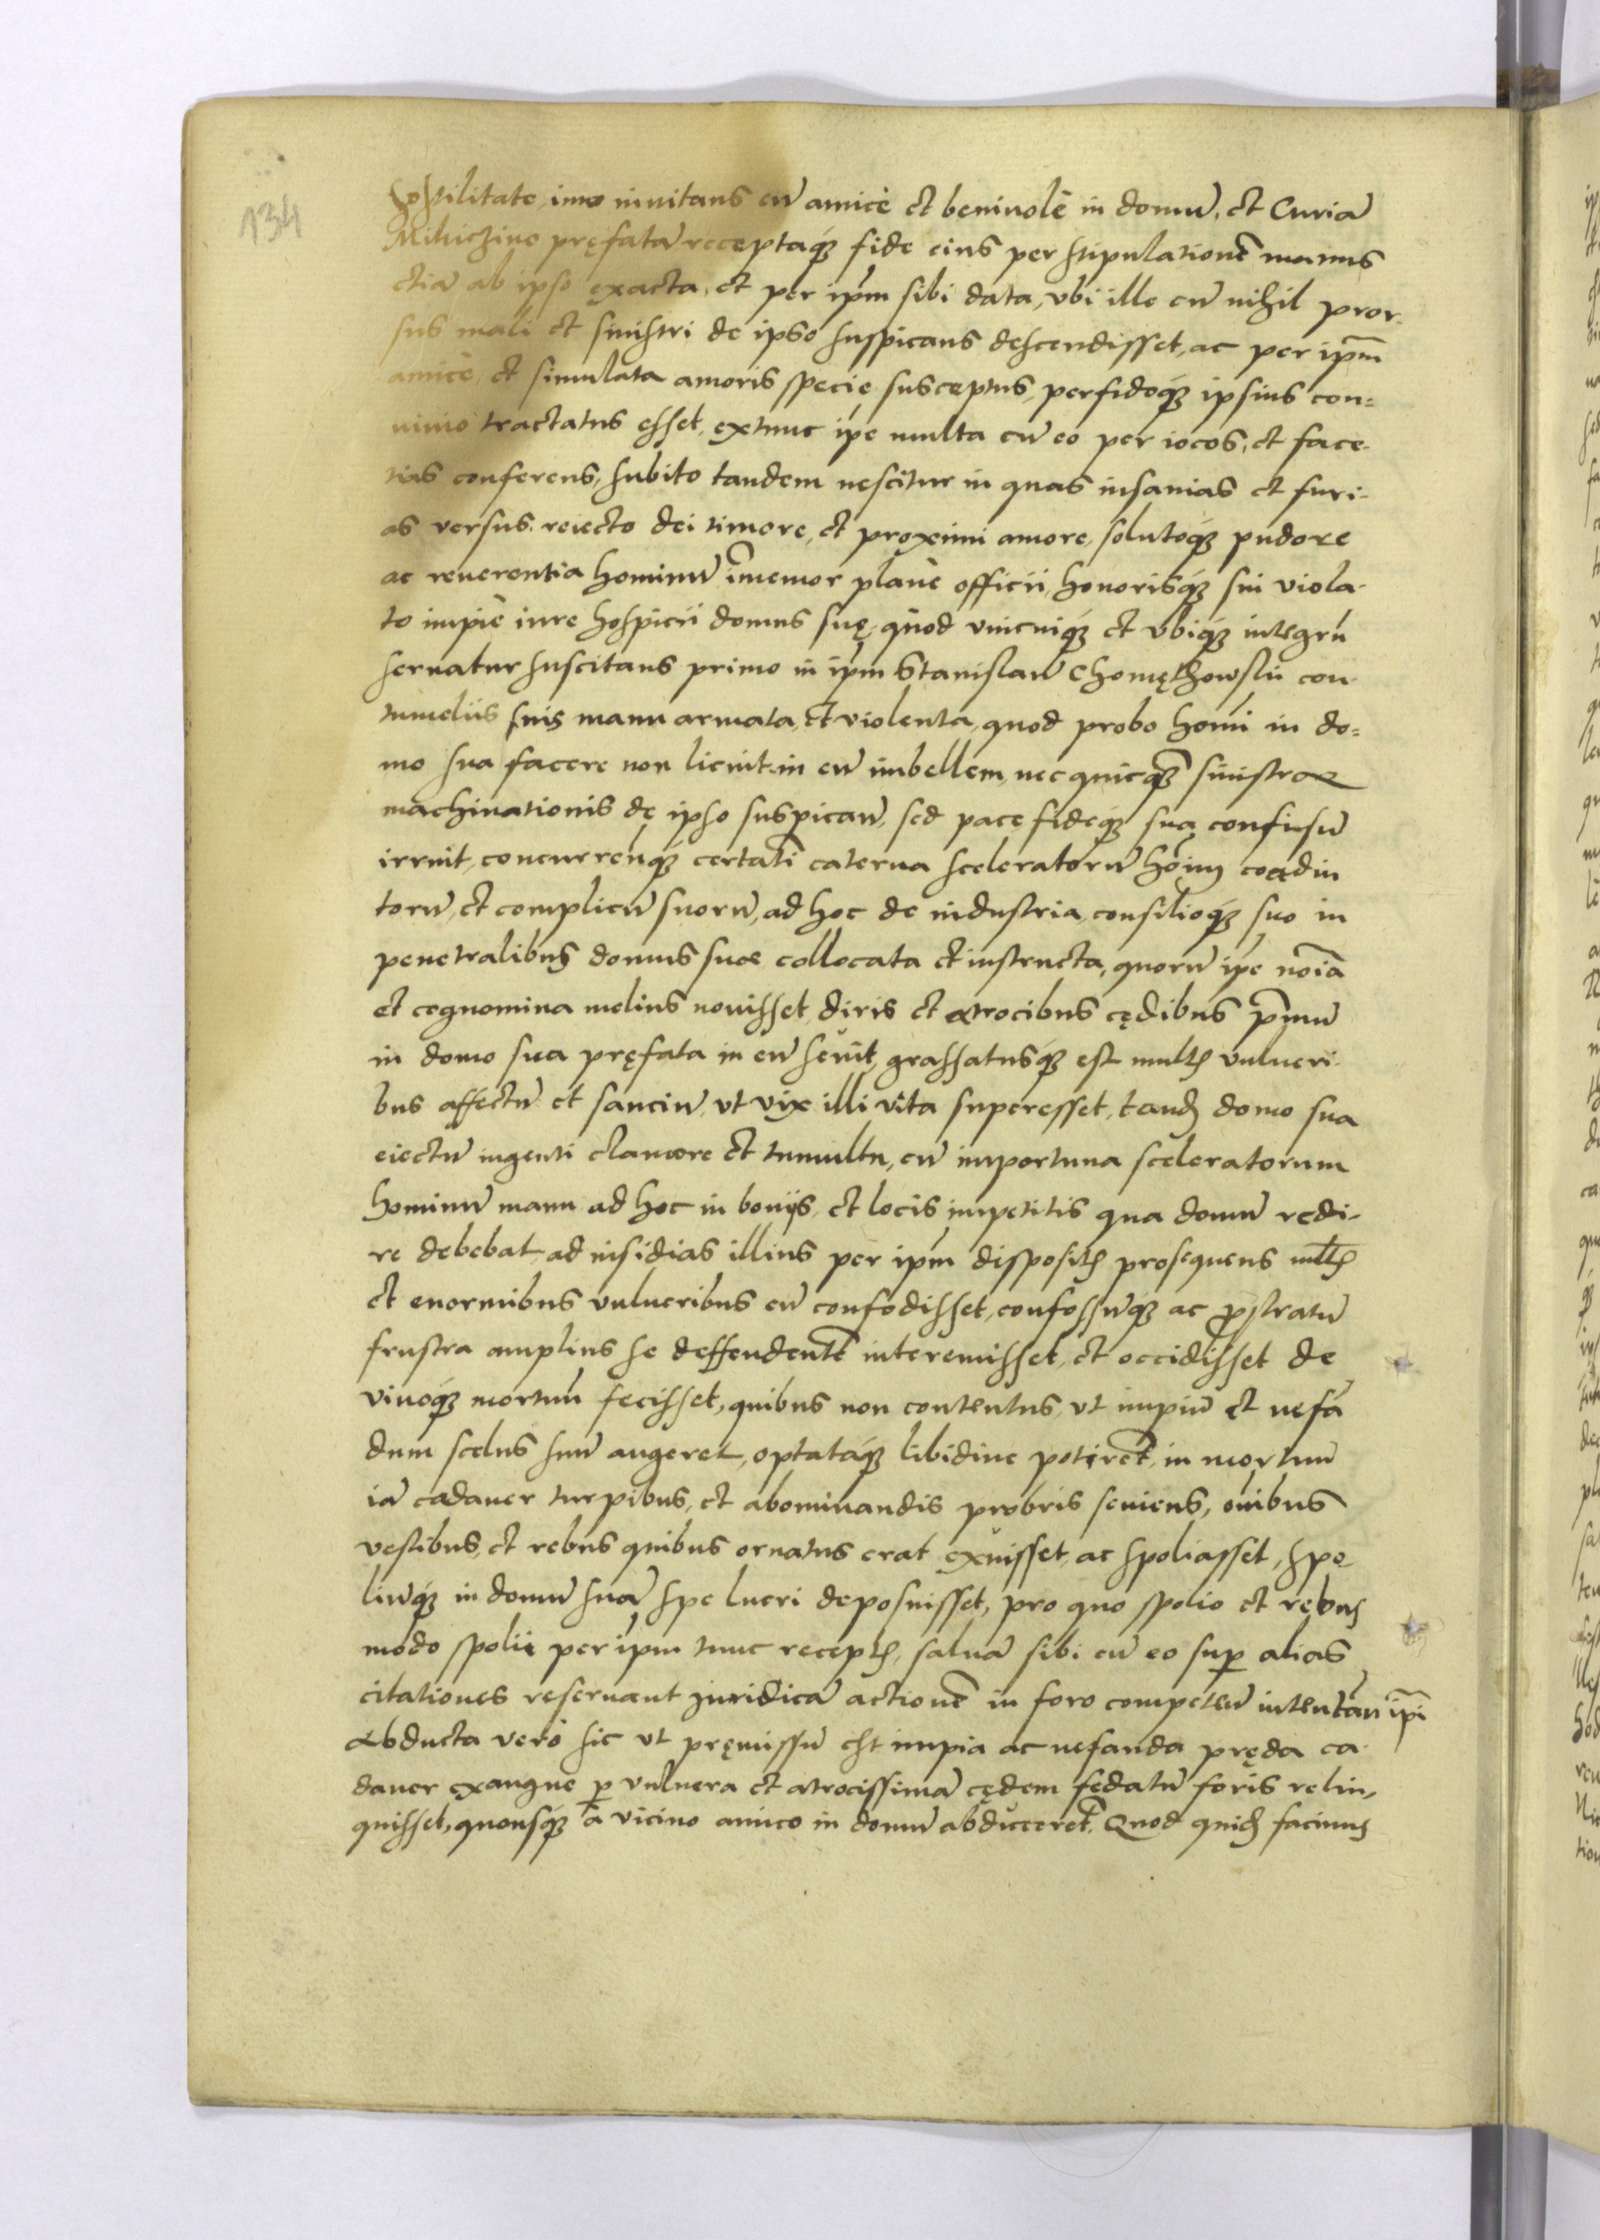 134
vilitate, imo inuitans eū amicè et beniuolè in domū, et Curiā
Mikiczino pręfatā receptaq́ꝫ fide eius per stipulationē manus
etiā ab ipso exacta, et per ip̄m sibi data, vbi ille cū nihil pror-
sus mali et sinistri de ipso suspicans descendisset, ac per ip̄m
amicè, et simulata amoris specie susceptus, perfidoq́ꝫ ipsius con=
uiuio tractatus esset, extunc ip̄e multa cū eo per iocos, et face-
tias conferens, subito tandem nescitur in quas insanias et furi-
as versus, reiecto dei timore, et proximi amore, solutoq́ꝫ pudore
ac reuerentia hominū īmemor planè officii, honorisq́ꝫ sui viola-
to impiè iure hospicii domus suę, quod vnicuiq́ꝫ et vbiq́ꝫ integrū
seruatur suscitans primo in ip̄m Stanislaū Chomęthowskī con-
tumeliis suis manu armata, et violenta, quod probo homī in do=
mo sua facere non licuit in eū imbellem, nec quicq̄ꝫ sinistrae
machinationis de ipso suspicanū, sed pace fideq́ꝫ sua confisū
irruit, concurrenq́ꝫ certatī caterua sceleratorū hoīm coadiu
torū, et complicū suorū, ad hoc de industria consilioq́ꝫ suo in
penetralibus domus suae collocata et instructa, quorū ip̄e noīa
et cognomina melius nouisset, diris et atrocibus cędibus p̄mū
in domo sua pręfata in eū seuit, grassatusq́ꝫ est multꝭ vulneri-
bus affectū et sauciū, vt vix illi vita superesset, tandꝫ domo sua
eiectū ingenti clamore et tumultu, cū importuna sceleratorum
hominū manu ad hoc in boniis, et locis impetitis qua domū redi-
re debebat, ad insidias illius per ip̄m dispositꝭ prosequens mltꝭ
et enormibus vulneribus eū confodisset, confossūq́ꝫ ac ꝓstratū
frustra amplius se deffendentē interemisset, et occidisset de
viuoq́ꝫ mortuū fecisset, quibus non contentus, vt impiū et nefā
dum scelus suū augeret, optataq́ꝫ libidine potiret̄, in mortuū
iā cadauer turpibus, et abominandis probris seuiens, oībus
vestibus, et rebus quibus ornatus erat exuisset, ac spoliasset, spo
liūq́ꝫ in domū suā spe lucri deposuisset, pro quo spolio et rebus
modo spolii per ip̄m tunc receptꝭ, saluā sibi cū eo suꝑ alias
citationes reseruant Juridicā actionē in foro competeñ intentań ip̄i
Abducta verò sic vt pręmissū est impia ac nefanda pręda ca-
dauer exangue ꝑ vulnera et atrocissimā cędem fedatū foris relin-
quisset, quousq́ꝫ a vicino amico in domū abduceret̄. Quod quidꝫ facinus